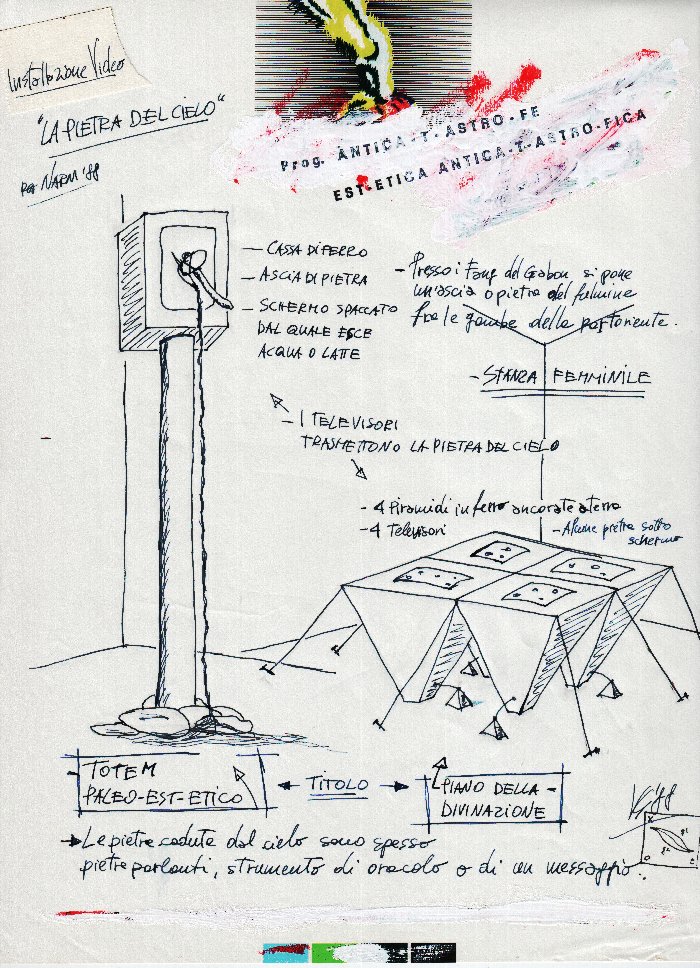 Installazione Video
"LA PIETRA DEL CIELO"
PER NARNI '88
Prog. ANTICA-T-ASTRO-FE
EST-ETICA ANTICA-T-ASTRO-FICA
- CASSA DI FERRO
- ASCIA DI PIETRA
- SCHERMO SPACCATO
DAL QUALE ESCE
ACQUA O LATTE
- Presso i Fang del Gabon si pone
un'ascia o pietra del fulmine
fra le gambe della partoriente.
- STANZA FEMMINILE
- I TELEVISORI
TRASMETTONO LA PIETRA DEL CIELO
- 4 Piramidi in ferro ancorate a terra
- 4 Televisori
- Alcune pietre sotto
schermo
- TOTEM
PALEO-EST-ETICO
TITOLO
PIANO DELLA -
DIVINAZIONE
'88
Le pietre cadute dal cielo sono spesso
pietre parlanti, strumento di oracolo o di un messaggio.